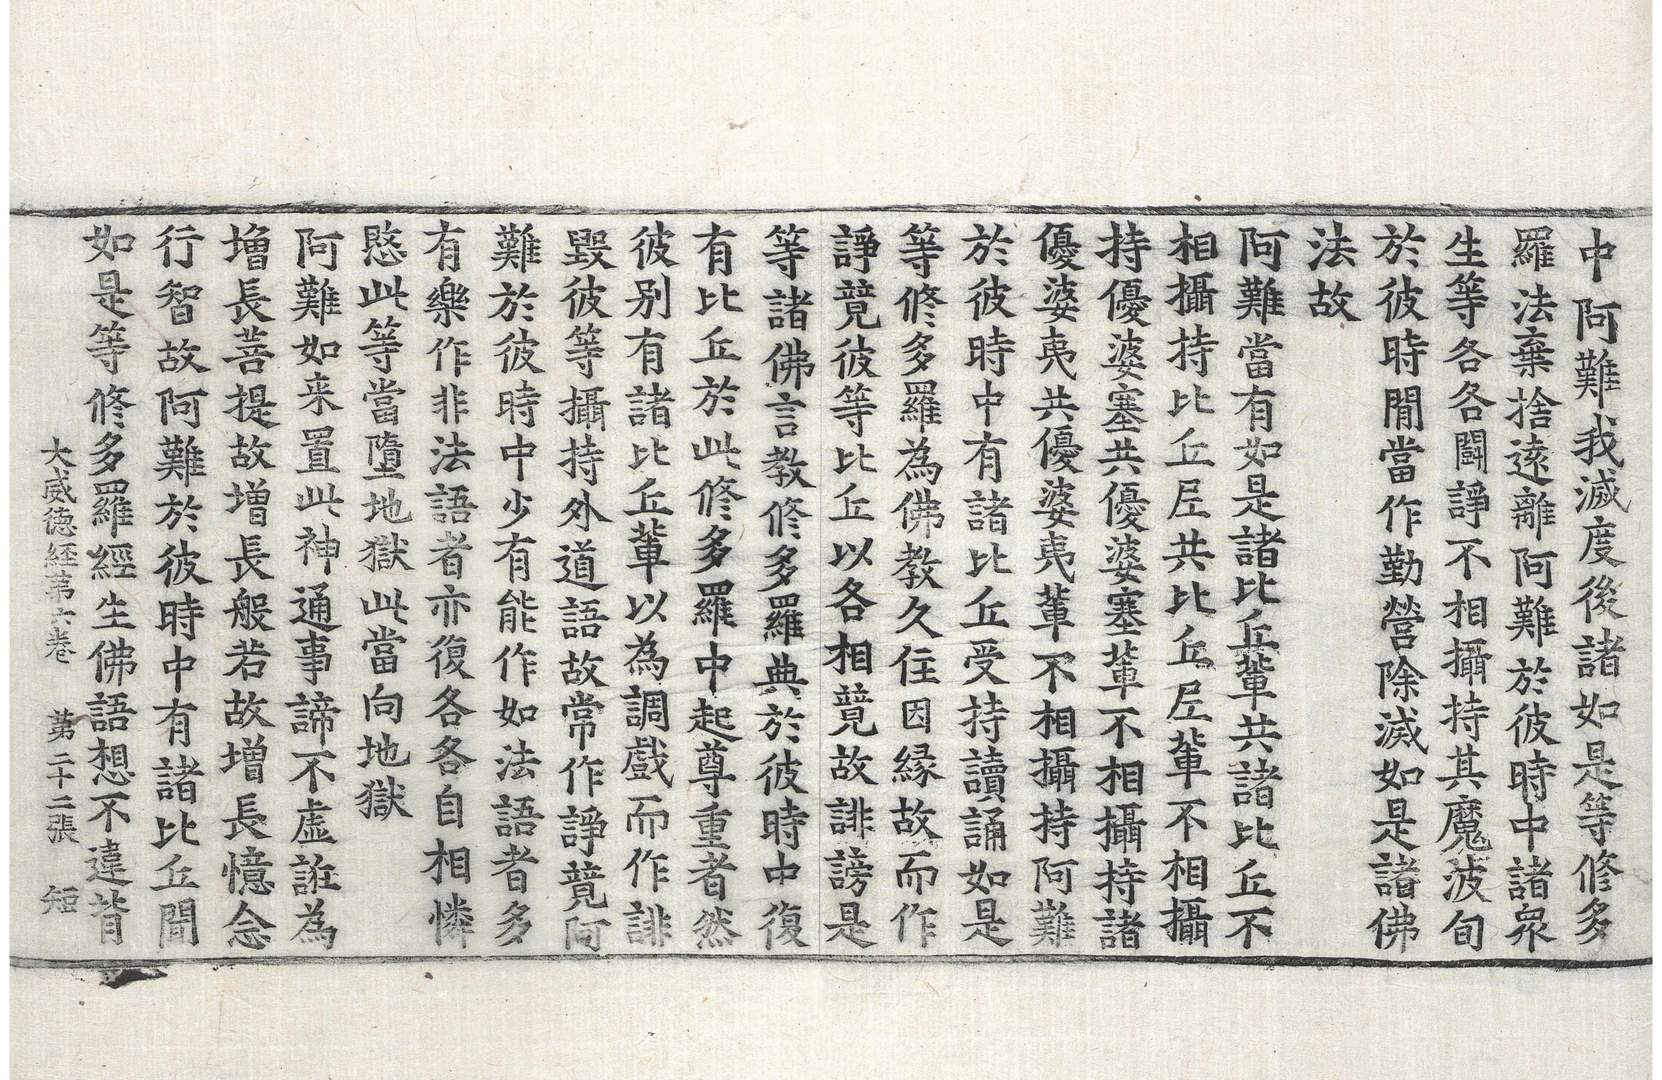 中阿難我滅度後諸如是等修多
羅法棄捨遠離阿難於彼時中諸衆
生等各各闘諍不相攝持其魔波旬
於彼時閒當作勤營除滅如是諸佛
法故
阿難當有如是諸比丘輩共諸比丘不
相攝持比丘尼共比丘尼輩不相攝
持優婆塞共優婆塞輩不相攝持諸
優婆夷共優婆夷輩不相攝持阿難
於彼時中有諸比丘受持讀誦如是
等修多羅為佛教久住因縁故而作
諍競彼等比丘以各相競故誹謗是
等諸佛言教修多羅典於彼時中復
有比丘於此修多羅中起尊重者然
彼别有諸比丘輩以為調戲而作誹
毀彼等攝持外道語故常作諍競阿
難於彼時中少有能作如法語者多
有樂作非法語者亦復各各自相憐
愍此等當墮地獄此當向地獄
阿難如来置此神通事諦不虛誑為
增長菩提故增長般若故增長憶念
行智故阿難於彼時中有諸比丘聞
如是等修多羅經生佛語想不違背
大威德経第六巻　第二十二張　短